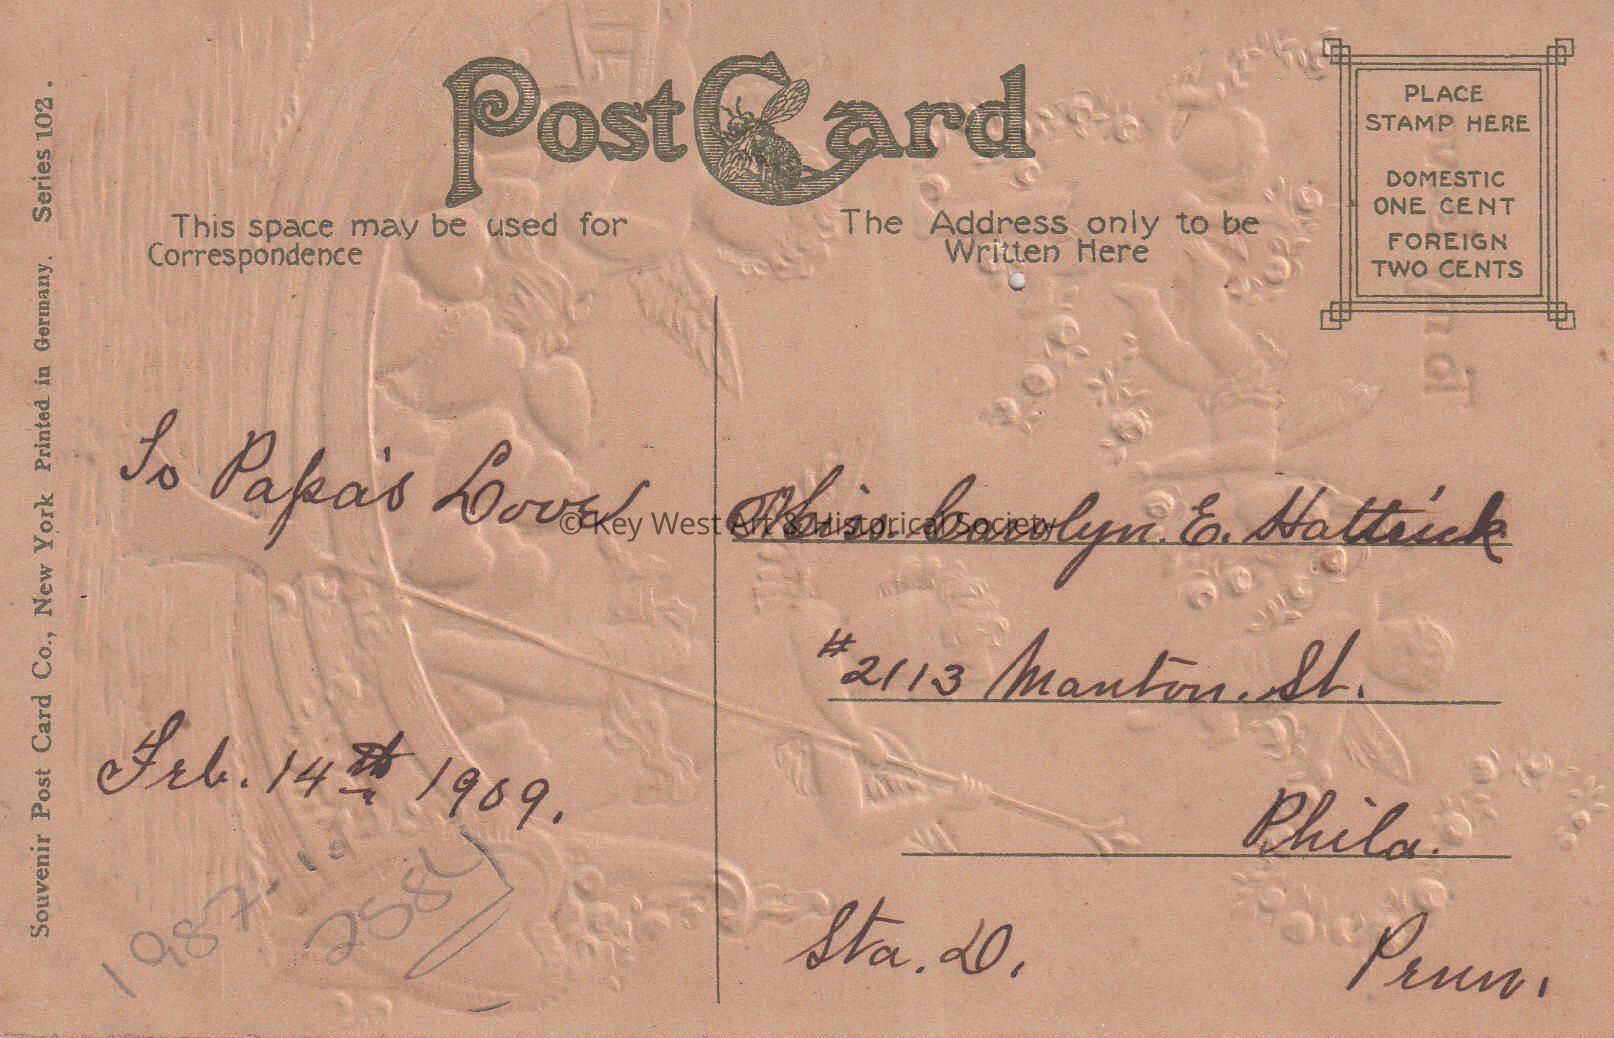 Post Card
PLACE
STAMP HERE
DOMESTIC
ONE CENT
FOREIGN
TWO CENTS
This space may be used for
Correspondence
The Address only to be
Written Here
Souvenir Post Card Co., New York Printed in Germany. Series 102.
To Papa's Love
Feb. 14th 1909.
Miss. Carolyn. E. Hattrick
#2113 Manton. St.
Phila.
Sta. D. Penn.
© Key West Art & Historical Society
1987.